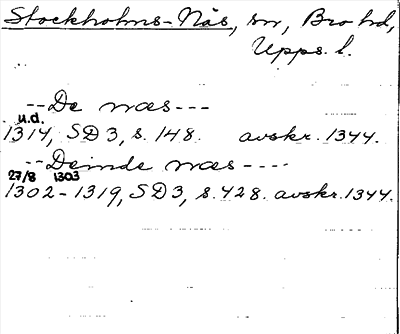 Stockholms-Näs, sn, Bro hd,
Upps. l.
--De næs---
u.d.
1314, SD 3, s. 148. avskr. 1344.
--Deinde næs----
27/8 1303
1302-1319, SD 3, s. 428. avskr. 1344.